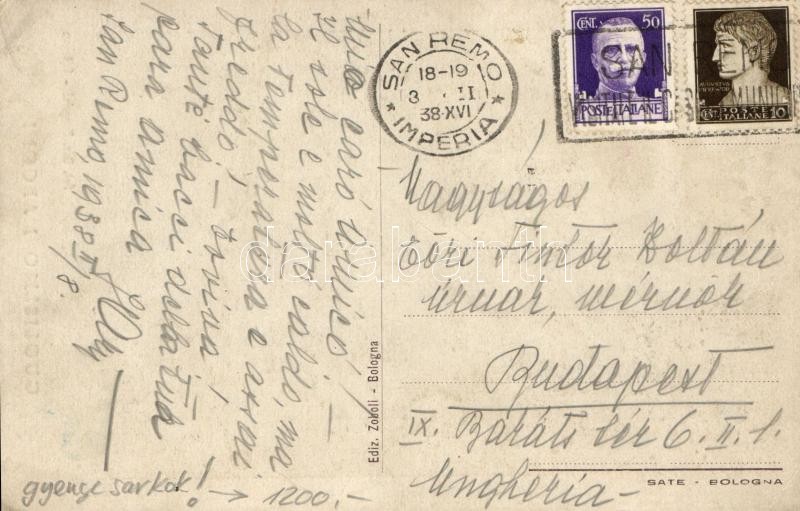 Mio caro amico! –
Il sole e molto caldo, ma
la temperatura e assai
freddo, –
tanti bacci della tua
cara amica
San Remo, 1938 II/8.
Ediz. Zoboli - Bologna
SAN REMO
18-19
38·XVI
IMPERIA
CENT. 50
POSTE ITALIANE
SAN
POSTE
ITALIANE 10
Nagyságos
Eőri Fintor Zoltán
úrnak, mérnök
Budapest
IX. Baráts tér 6. II. 1.
Ungheria –
SATE - BOLOGNA
gyenge sarkok! → 1200.–
databanth